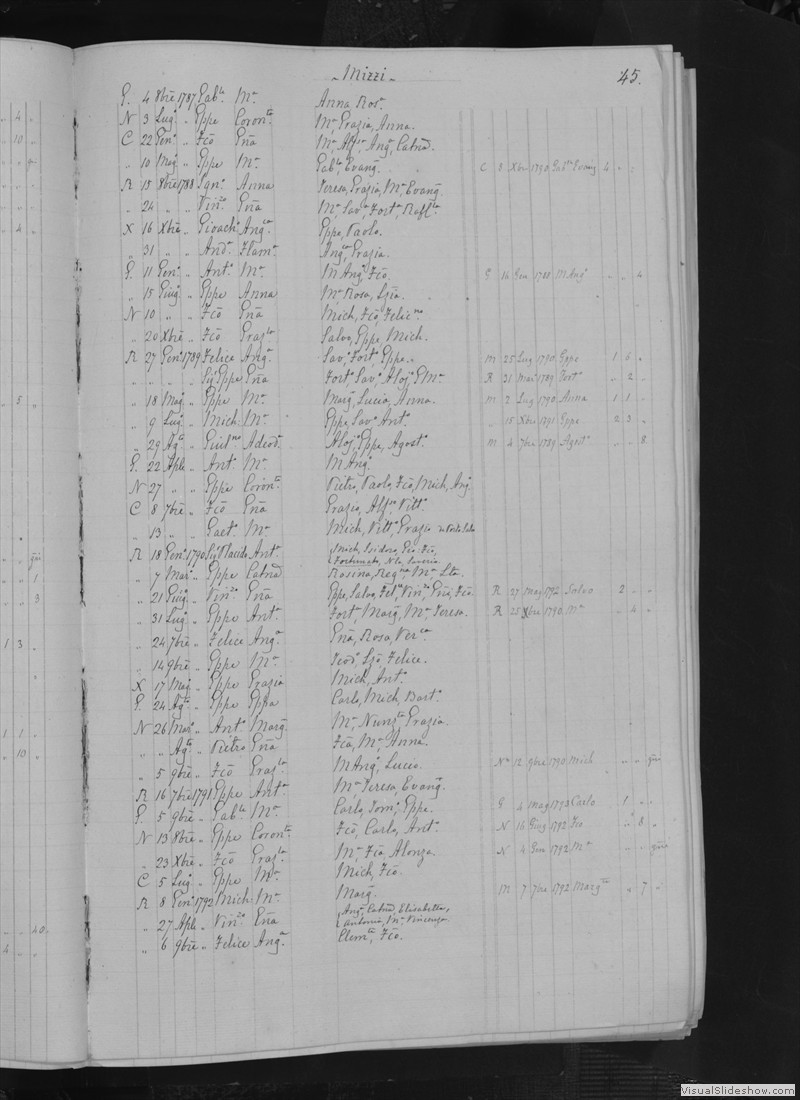 „ Mizzi „ 45.
G. 4 8bre 1787 Gable Ma Anna, Rosa.
N 3 Lugo „ Gppe Coronta Ma, Grazia, Anna.
C 22 Geno „ Fco Gña Ma, Alfsa, Anga, Catnã.
„ 10 Mago „ Gppe Ma Gable, Evang. C 8 Xbre 1790 Gable Evang 4 „ „
R 15 8bre 1788 Ignzo Anna Teresa, Grazia, Ma, Evang.
„ 24 „ „ Vinzo Gña Ma, Sava, Forta, Raffla
X 16 Xbre „ Gioachno Angca Gppe, Paolo.
„ 31 „ „ Anda Flama Angca, Grazia.
G. 11 Geno „ Anto Ma M Anga, Fca. G 16 Gen 1788 M Anga „ „ 4
„ 15 Giugo „ Gppe Anna Ma, Rosa,
N 10 „ „ Fco Gña Mich, Fco, Felicna
„ 20 Xbre „ Fco Grazla Salvo, Gppe, Mich.
R 27 Geno 1789 Felice Anga Sava, Forta, Gppe. M 25 Lug 1790 Gppe 1 6 „
„ „ „ Sigr Gppe Gña Forta, Sava, Aloja, G Ma. R 31 Marzo 1789 Forta „ 2 „
„ 18 Mago „ Gppe Ma Marga, Lucia, Anna. M 2 Lug 1790 Anna 1 1 „
„ 9 Lugo „ Mich: Ma Gppe, Sava, Anta. „ 15 Xbre 1791 Gppe 2 3 „
„ 29 Agto „ Giulno Adeoda Aloja, Gppe, Agosto. M 4 7bre 1789 Agosto „ „ 8
G. 22 Aple „ Anto Ma M Anga.
N 27 „ „ Gppe Coronta Pietro, Paolo, Fco, Mich, Ang.
C 8 7bre „ Fco Gña Grazia, Alfsa, Vitta
„ 13 „ „ Gaeto Ma Mich, Vitta, Grazia
R 18 Geno 1790 Sigr Claudo Anta {Mich, Isidoro, Gio, Fco,
{Fortunata, Nla, Saverio.
„ 7 Marzo „ Gppe Catnã Rosina, Regna, Ma,
„ 21 Giugo „ Vinzo Gña Gppe, Salvo, Felce, Vinza, Gña, Fca R 27 Mag 1792 Salvo 2 „ „
„ 31 Lugo „ Gppe Anta Forta, Marga, Ma, Teresa. R 25 Xbre 1790 Ma „ 4 „
„ 24 7bre „ Felice Anga Gña, Rosa, Verca
„ 14 9bre „ Gppe Ma Teoda, Felice.
X 17 Mago „ Gppe Grazia Mich, Anta
G. 24 Agto „ Gppe Gppa Carlo, Mich, Barto.
N 26 Marzo „ Anto Marga Ma, Nunzta, Grazia.
„ „ Agto „ Pietro Gña Fca, Ma, Anna.
„ 5 9bre „ Fco Grazla M Anga, Lucia. Na 12 9bre 1790 Mich „ „ gni
R 16 7bre 1791 Gppe Anta Ma, Teresa, Evang.
G. 5 9bre „ Gable Ma Carlo, Domo, Gppe. G 4 Mag 1793 Carlo 1 „ „
N 13 8bre „ Gppe Coronta Fco, Carlo, Anta. N 16 Giug 1792 Fco „ 8 „
„ 23 Xbre „ Fco Grazla Ma, Fca, Alonza. N 4 Gen 1792 Ma „ „ gni
C 5 Lugo „ Gppe Ma Mich, Fco.
R 8 Geno 1792 Mich: Ma Marga. M 7 7bre 1792 Margta „ 7 „
„ 27 Aple „ Vinzo Gña {Anga, Catnã, Elisabetta,
{Antonia, Ma, Vincenza.
„ 6 9bre „ Felice Anga Clemte, Fco.
VisualSlideshow.com